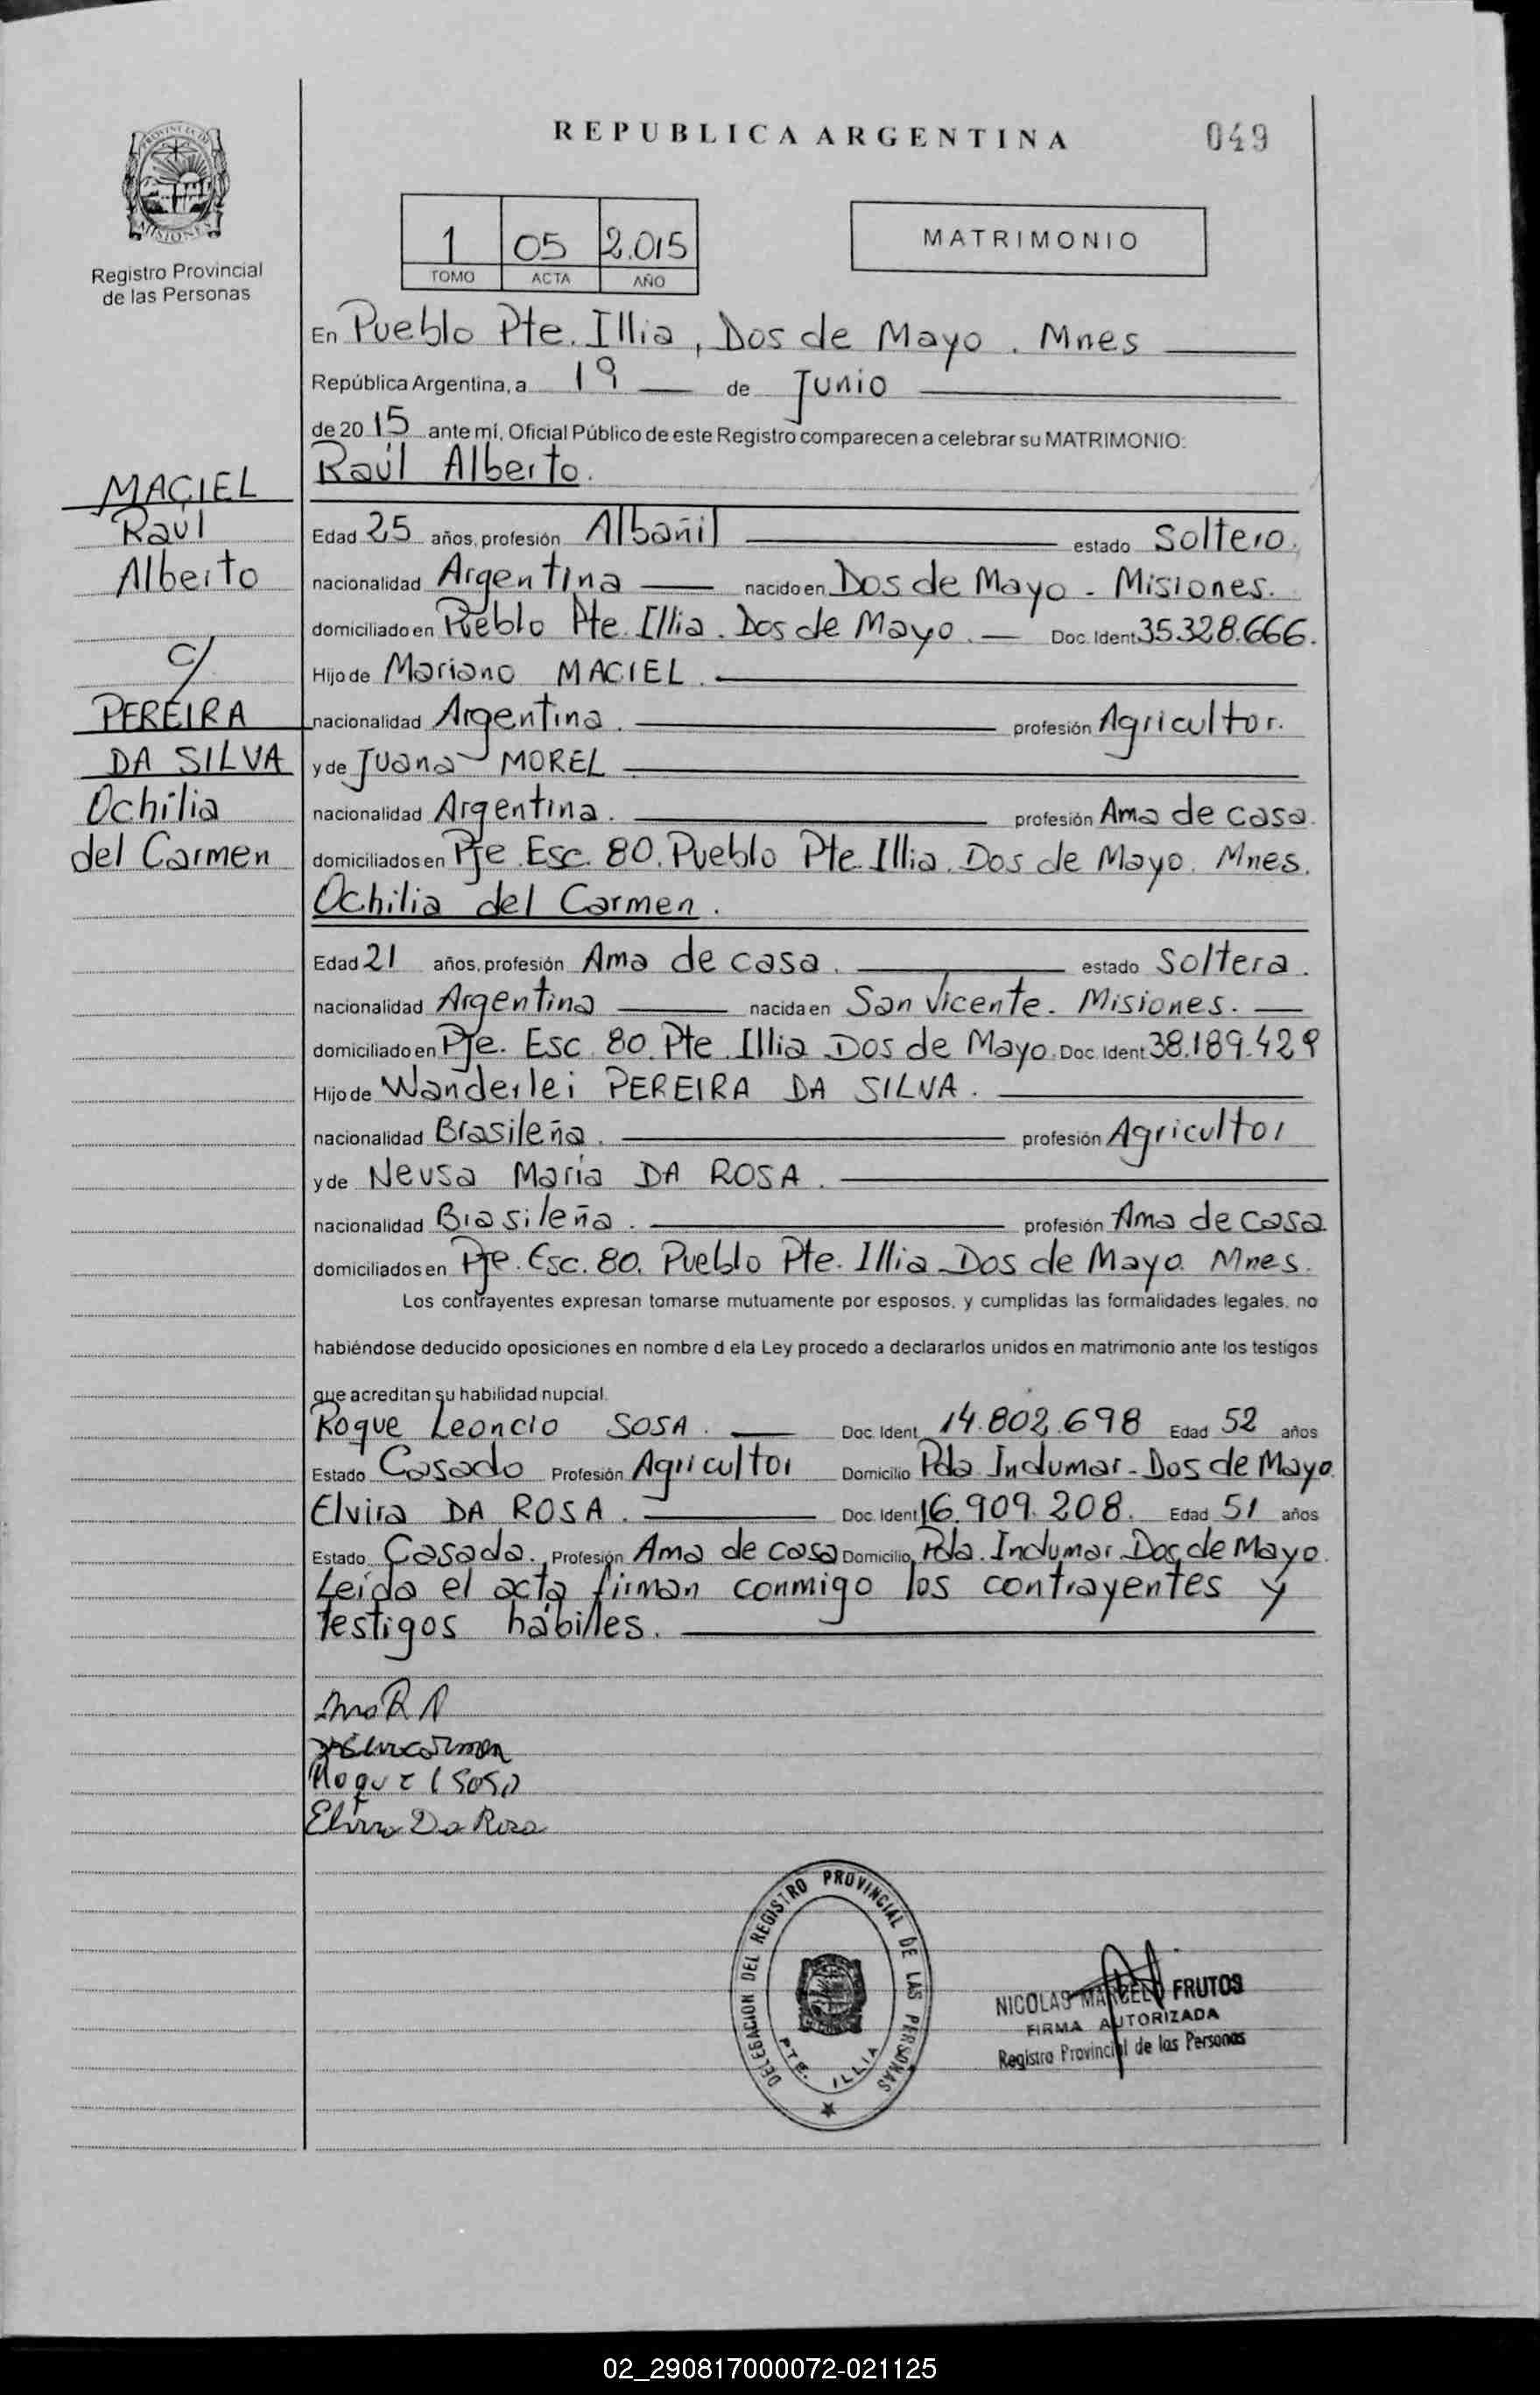 REPUBLICA ARGENTINA
049
PROVINCIA DE
MISIONES
Registro Provincial
de las Personas
1 05 2.015
TOMO ACTA AÑO
MATRIMONIO
En Pueblo Pte. Illia, Dos de Mayo. Mnes
República Argentina, a 19 de Junio
de 20 15 ante mí, Oficial Público de este Registro comparecen a celebrar su MATRIMONIO:
Raúl Alberto.
MACIEL
Raúl
Alberto
c/
PEREIRA
DA SILVA
Ochilia
del Carmen
Edad 25 años, profesión Albañil estado Soltero.
nacionalidad Argentina nacido en Dos de Mayo - Misiones.
domiciliado en Pueblo Pte. Illia. Dos de Mayo. Doc. Ident. 35.328.666.
Hijo de Mariano MACIEL.
nacionalidad Argentina. profesión Agricultor.
y de Juana MOREL
nacionalidad Argentina. profesión Ama de casa.
domiciliados en Pje Esc. 80. Pueblo Pte. Illia. Dos de Mayo. Mnes.
Ochilia del Carmen.
Edad 21 años, profesión Ama de casa. estado Soltera.
nacionalidad Argentina nacida en San Vicente. Misiones.
domiciliado en Pje. Esc. 80. Pte. Illia Dos de Mayo. Doc. Ident. 38.189.429
Hijo de Wanderlei PEREIRA DA SILVA.
nacionalidad Brasileña. profesión Agricultor
y de Neusa María DA ROSA.
nacionalidad Brasileña. profesión Ama de casa
domiciliados en Pje. Esc. 80. Pueblo Pte. Illia Dos de Mayo. Mnes.
Los contrayentes expresan tomarse mutuamente por esposos, y cumplidas las formalidades legales, no
habiéndose deducido oposiciones en nombre d ela Ley procedo a declararlos unidos en matrimonio ante los testigos
que acreditan su habilidad nupcial.
Roque Leoncio SOSA. Doc. Ident. 14.802.698 Edad 52 años
Estado Casado Profesión Agricultor Domicilio Pda Indumar - Dos de Mayo
Elvira DA ROSA. Doc. Ident. 16.909.208. Edad 51 años
Estado Casada. Profesión Ama de casa Domicilio Pda. Indumar Dos de Mayo.
Leída el acta firman conmigo los contrayentes y
testigos hábilles.
Roque L SOSA
Elvira Da Rosa
DELEGACION DEL REGISTRO PROVINCIAL DE LAS PERSONAS
PTE. ILLIA
NICOLAS MARCELO FRUTOS
FIRMA AUTORIZADA
Registro Provincial de las Personas
02_290817000072-021125